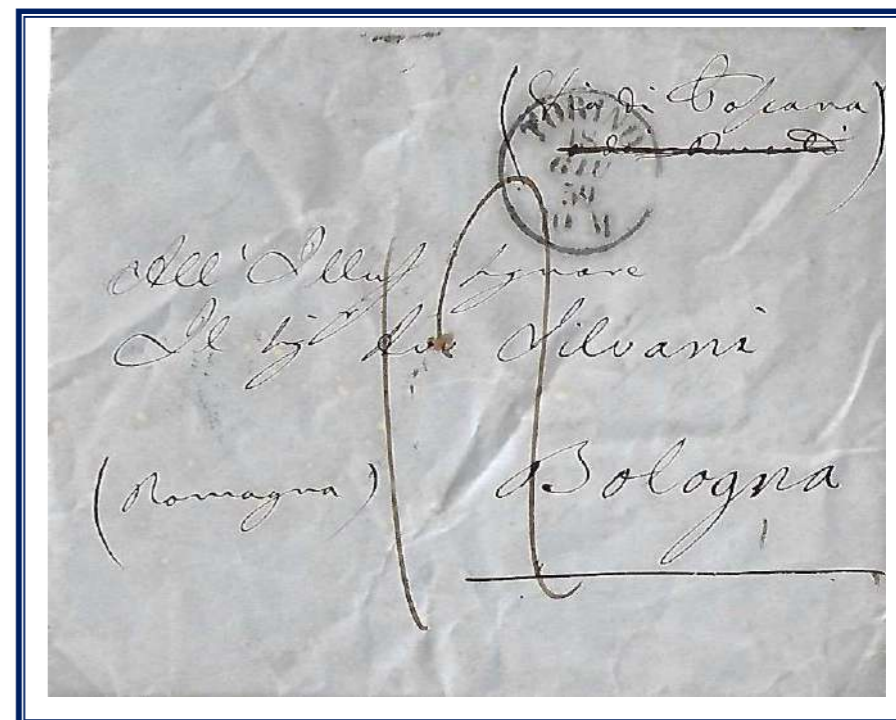 (Via di Toscana)
TORINO
18
GIU
59
All' Illus Signore
Il Sig Silvani
(Romagna) Bologna